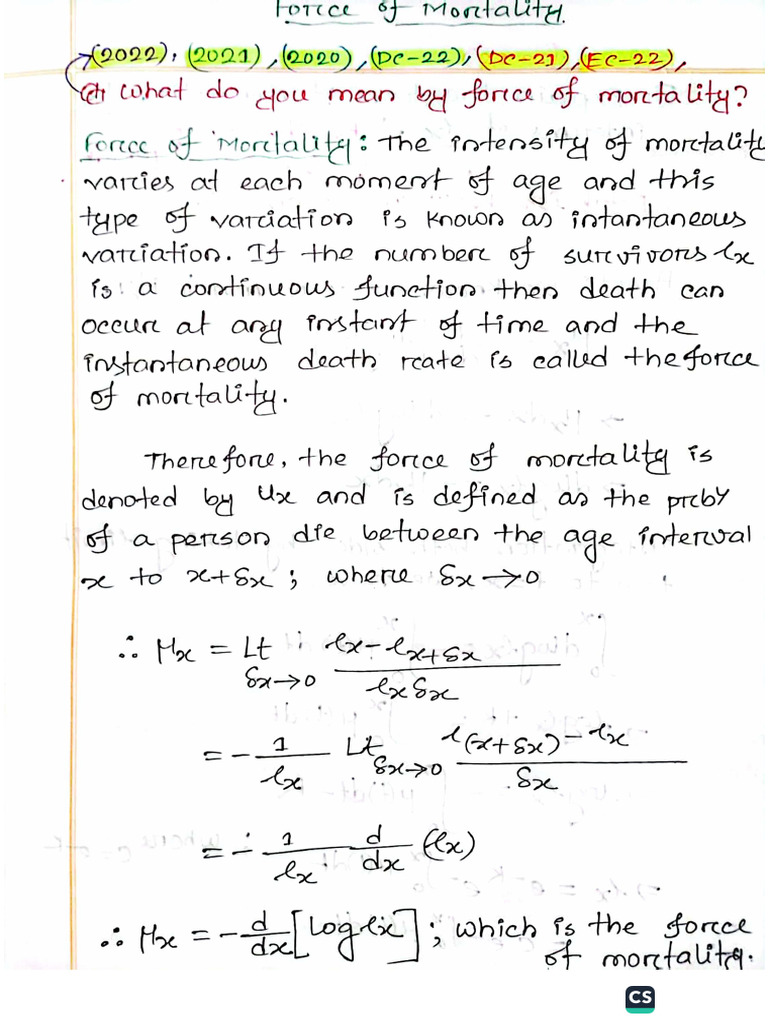 Force of Mortality.
(2022), (2021), (2020), (DC-22), (DC-21), (EC-22),
What do you mean by force of mortality?
Force of Mortality: The intensity of mortality
varies at each moment of age and this
type of variation is known as intantaneous
variation. If the number of survivors lx
is a continuous function then death can
occur at any instant of time and the
instantaneous death rate is called the force
of mortality.
Therefore, the force of mortality is
denoted by ux and is defined as the prby
of a person die between the age interval
x to x+δx ; where δx→0
∴ μx = Lt δx→0 (lx - lx+δx) / (lx δx)
= - 1/lx Lt δx→0 (l(x+δx) - lx) / δx
= - 1/lx d/dx (lx)
∴ μx = - d/dx [log lx] ; which is the force
of mortality.
CS